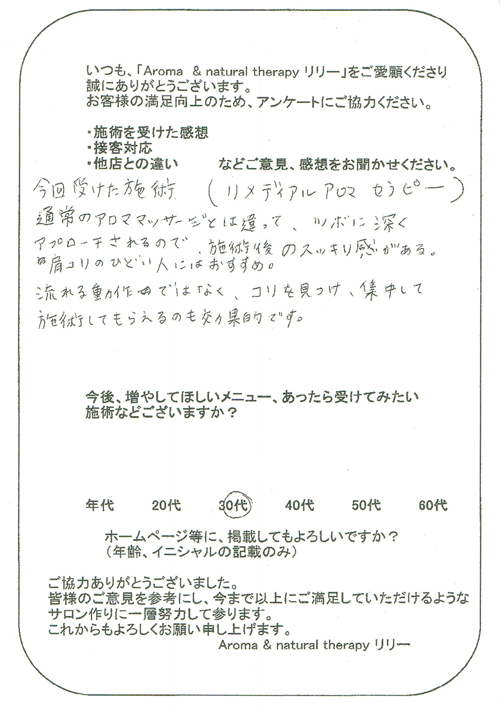 いつも、「Aroma & natural therapy リリー」をご愛顧くださり
誠にありがとうございます。
お客様の満足向上のため、アンケートにご協力ください。
・施術を受けた感想
・接客対応
・他店との違い　　などご意見、感想をお聞かせください。
今回受けた施術　（リメディアルアロマセラピー）
通常のアロママッサージとは違って、ツボに深く
アプローチされるので、施術後のスッキリ感がある。
肩コリのひどい人にはおすすめ。
流れる動作ではなく、コリを見つけ、集中して
施術してもらえるのも効果的です。
今後、増やしてほしいメニュー、あったら受けてみたい
施術などございますか？
年代　20代　30代　40代　50代　60代
ホームページ等に、掲載してもよろしいですか？
（年齢、イニシャルの記載のみ）
ご協力ありがとうございました。
皆様のご意見を参考にし、今まで以上にご満足していただけるような
サロン作りに一層努力して参ります。
これからもよろしくお願い申し上げます。
Aroma & natural therapy リリー